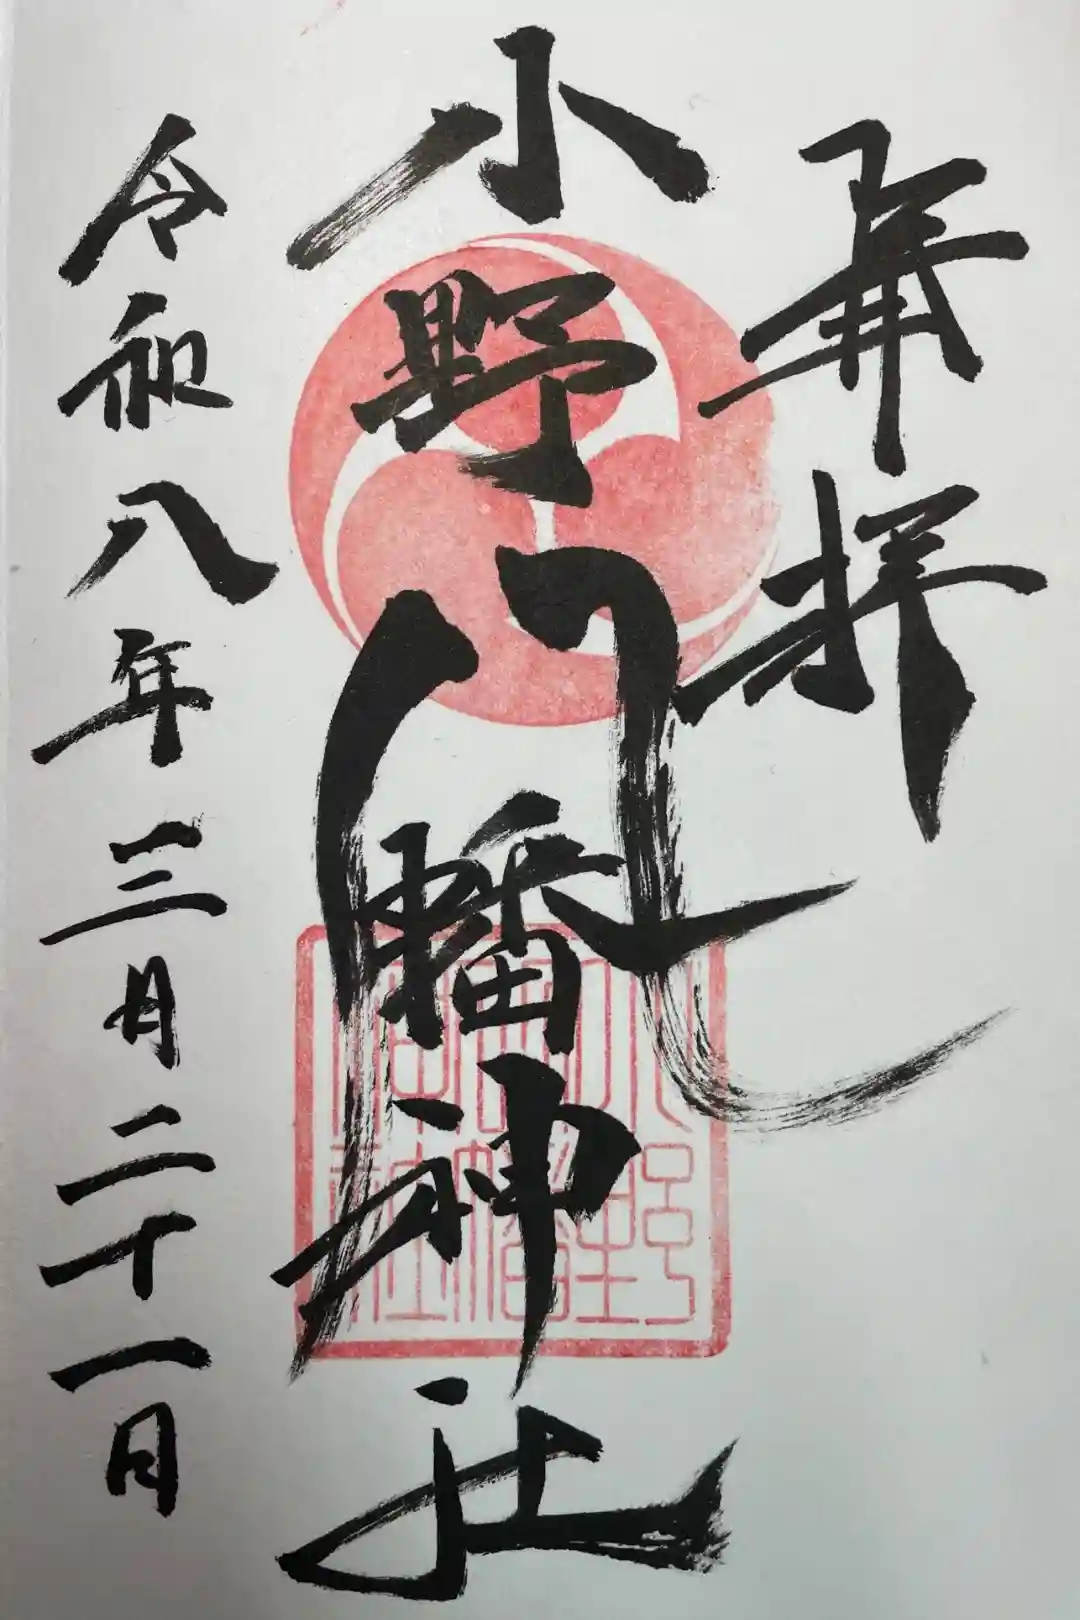 奉拝
小野八幡神社
小野
八幡
神社
令和八年三月二十一日